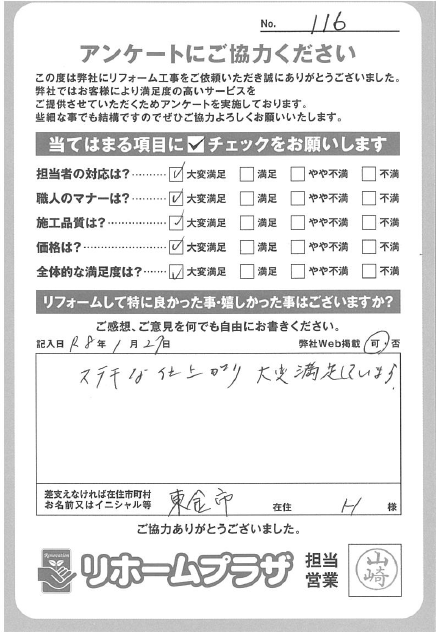 No. 116
アンケートにご協力ください
この度は弊社にリフォーム工事をご依頼いただき誠にありがとうございました。
弊社ではお客様により満足度の高いサービスを
ご提供させていただくためアンケートを実施しております。
些細な事でも結構ですのでぜひご協力よろしくお願いいたします。
当てはまる項目に✓チェックをお願いします
担当者の対応は?………… ✓大変満足 □満足 □やや不満 □不満
職人のマナーは?………… ✓大変満足 □満足 □やや不満 □不満
施工品質は?………… ✓大変満足 □満足 □やや不満 □不満
価格は?………… ✓大変満足 □満足 □やや不満 □不満
全体的な満足度は?…… ✓大変満足 □満足 □やや不満 □不満
リフォームして特に良かった事・嬉しかった事はございますか?
ご感想、ご意見を何でも自由にお書きください。
記入日 R8年 1月 27日 弊社Web掲載 可・否
ステキな仕上がり 大変満足しています
差支えなければ在住市町村
お名前又はイニシャル等 東金市 在住 H 様
ご協力ありがとうございました。
Renovation
リホームプラザ
担当
営業
山崎